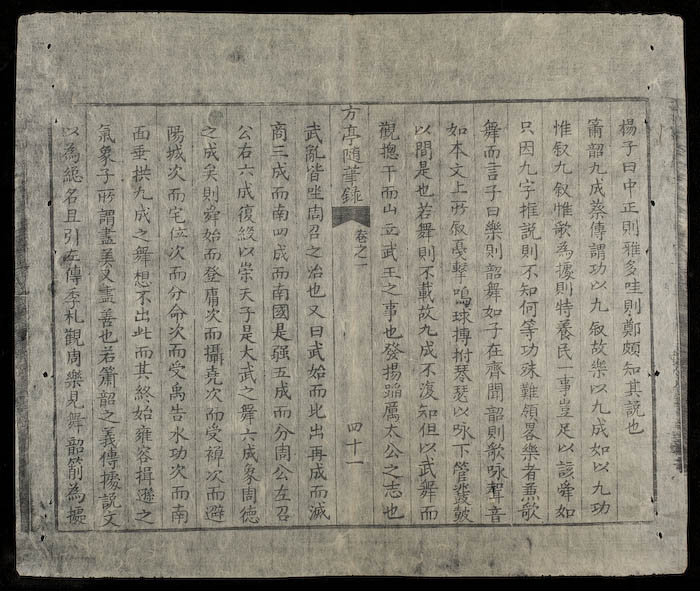 楊子曰中正則雅多哇則鄭頗知其說也
簫韶九成蔡傳謂功以九叙故樂以九成如以九功
惟叙九叙惟歌為據則特養民一事豈足以該舜如
只因九字推說則不知何等功殊難領畧樂者兼歌
舞而言子曰樂則韶舞如子在齊聞韶則歌咏聲音
如本文上所叙戞擊鳴球搏拊琴瑟以咏下管鼗鼓
以間是也若舞則不載故九成不復知但以武舞而
觀揔干而山立武王之事也發揚蹈厲太公之志也
方亭隨筆錄
卷之一
四十一
武亂皆坐周召之治也又曰武始而北出再成而滅
商三成而南四成而南國是彊五成而分周公左召
公右六成復綴以崇天子是大武之舞六成象周德
之成矣則舜始而登庸次而攝堯次而受禪次而避
陽城次而宅位次而分命次而受禹告水功次而南
面垂拱九成之舞想不出此而其終始雍容揖遜之
氣象子所謂盡美又盡善也若簫韶之義傳據說文
以為總名且引左傳季札觀周樂見舞韶箾為據